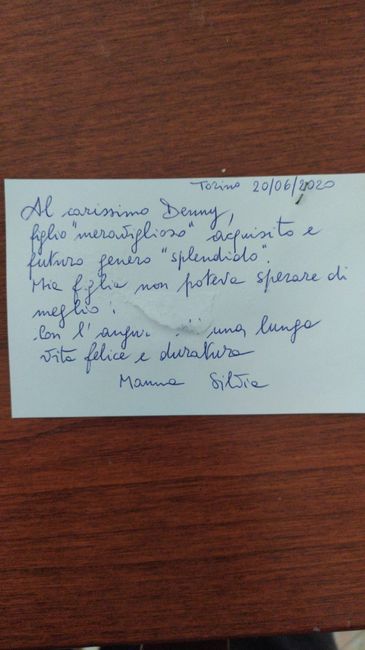 Torino 20/06/2020
Al carissimo Denny,
figlio "meraviglioso" acquisito e
futuro genero "splendido".
Mia figlia non poteva sperare di
meglio!
Con l'augur una lunga
vita felice e duratura
Mamma Silvia